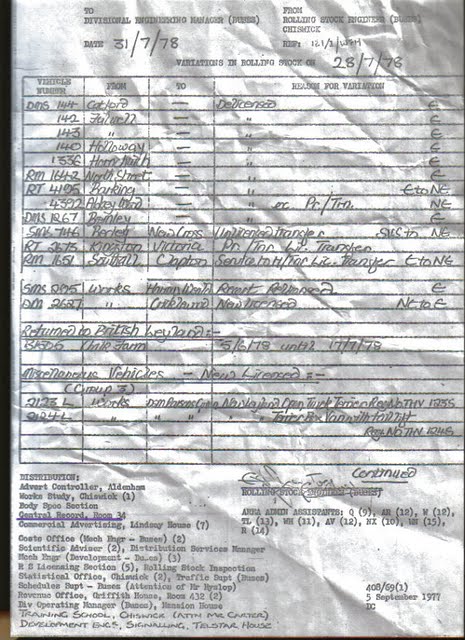 TO FROM
DIVISIONAL ENGINEERING MANAGER (BUSES) ROLLING STOCK ENGINEER (BUSES)
CHISWICK
DATE 31/7/78 REF:
VARIATIONS IN ROLLING STOCK ON 28/7/78
VEHICLE NUMBER FROM TO REASON FOR VARIATION
DMS 144 Catford — Delicensed E
142 Fulwell — " E
143 " — " E
140 Holloway — " E
1336 — " E
RM 1642 North Street — " E
RT 4195 Barking — " E to NE
4392 Abbey Wood — " ex Pr/Trn. NE
DMS 1267 Bromley — " E
SMS 746 Bexley New Cross Unlicensed Transfer SMS to NE
RT 2673 Kingston Victoria Pr/Tnr Lic. Transfer
RM 1651 Southall Clapton Service to Pr/Tnr Lic. Transfer E to NE
SMS Works Relicensed E
DM 2637 " Cricklewood New Licensed NE to E
Returned to British Leyland:-
Chalk Farm 5/6/78 until 17/7/78
Miscellaneous Vehicles - New Licensed:-
(Group 3)
2123 L Works Reg No THV 123S
2124 L " " " Terrier Van with Tail
Reg No THV 124S
Continued
DISTRIBUTION: ROLLING STOCK ENGINEER (BUSES)
Advert Controller, Aldenham
Works Study, Chiswick (1)
Body Spec Section
Central Record, Room 34
Commercial Advertising, Lindsay House (7)
AREA ADMIN ASSISTANTS: Q (9), AR (12), W (12),
TL (13), WH (11), AV (12), NX (10), HN (15),
R (14)
Costs Office (Mech Engr - Buses) (2)
Scientific Adviser (2), Distribution Services Manager
Mech Engr (Development - Buses) (3)
R S Licensing Section (5), Rolling Stock Inspection
Statistical Office, Chiswick (2), Traffic Supt (Buses)
Schedules Supt - Buses (Attention of Mr Hyslop)
Revenue Office, Griffith House, Room 432 (2)
Div Operating Manager (Buses), Mansion House
408/69(1)
5 September 1977
DC
TRAINING SCHOOL, CHISWICK (ATTN MR CARTER)
DEVELOPMENT ENGS, SIGNALLING, TELSTAR HOUSE